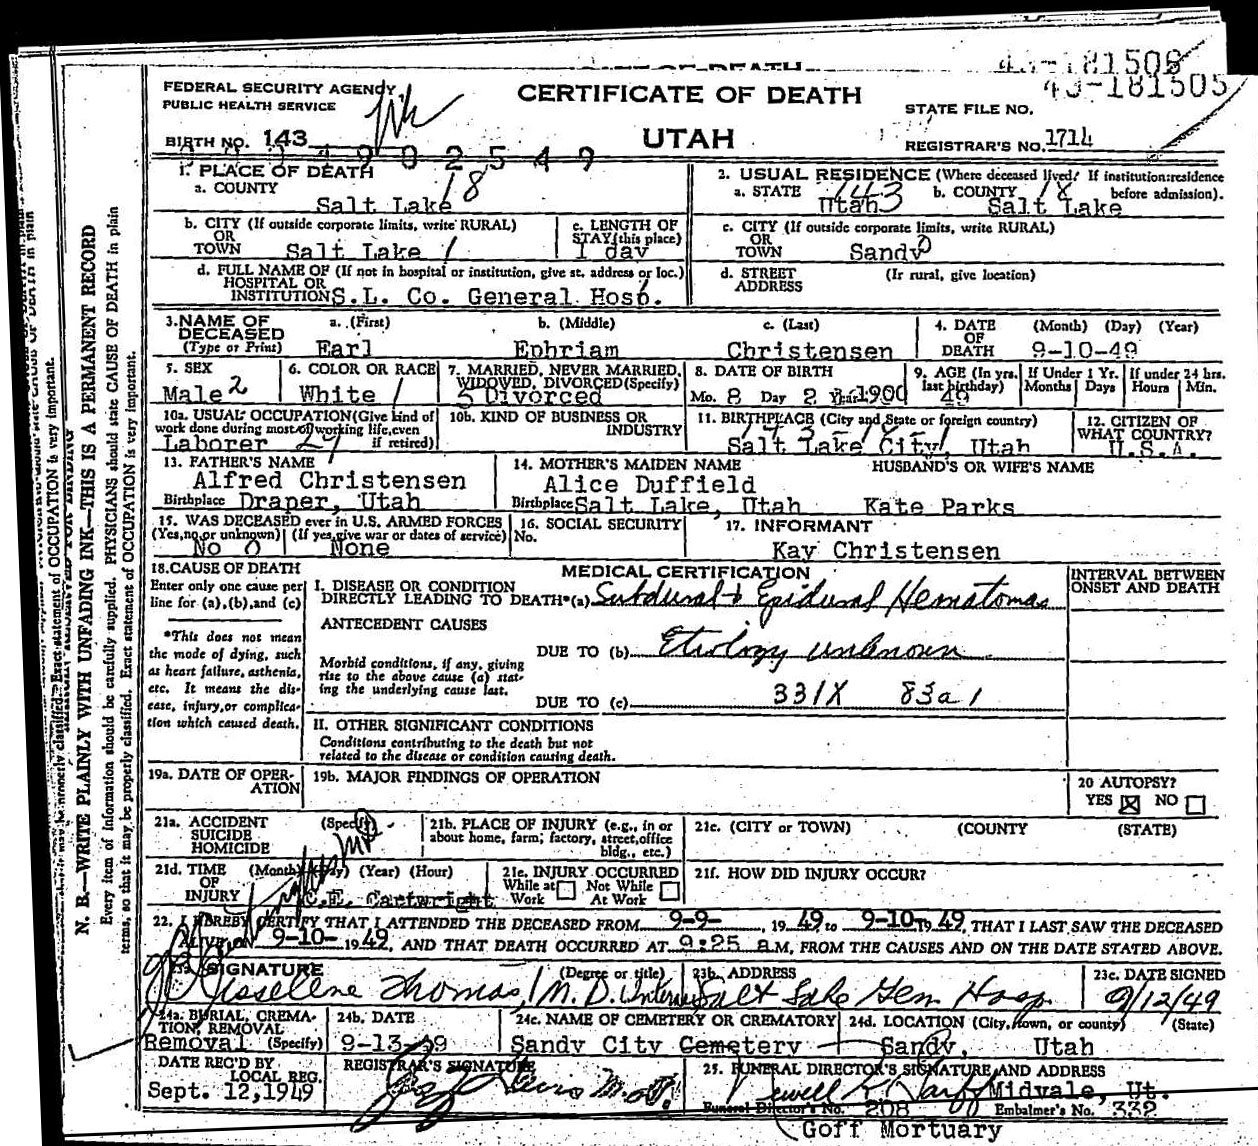 43-181505
FEDERAL SECURITY AGENCY
PUBLIC HEALTH SERVICE
CERTIFICATE OF DEATH
STATE FILE NO.
BIRTH NO. 143
UTAH
REGISTRAR'S NO. 1714
4 9 0 2 5 4 9
1. PLACE OF DEATH
a. COUNTY
Salt Lake 18
2. USUAL RESIDENCE (Where deceased lived. If institution: residence before admission).
a. STATE Utah 143 b. COUNTY Salt Lake 18
b. CITY (If outside corporate limits, write RURAL)
OR
TOWN Salt Lake 1
c. LENGTH OF
STAY (this place)
1 day
c. CITY (If outside corporate limits, write RURAL)
OR
TOWN Sandy 0
d. FULL NAME OF (If not in hospital or institution, give st. address or loc.)
HOSPITAL OR
INSTITUTION S.L. Co. General Hosp.
d. STREET (If rural, give location)
ADDRESS
3. NAME OF DECEASED
(Type or Print)
a. (First) Earl
b. (Middle) Ephriam
c. (Last) Christensen
4. DATE OF DEATH (Month) (Day) (Year)
9-10-49
5. SEX
Male 2
6. COLOR OR RACE
White 1
7. MARRIED, NEVER MARRIED,
WIDOWED, DIVORCED (Specify)
5 Divorced
8. DATE OF BIRTH
Mo. 8 Day 2 Year 1900
9. AGE (In yrs. last birthday)
49
If Under 1 Yr.
Months Days
If under 24 hrs.
Hours Min.
10a. USUAL OCCUPATION (Give kind of
work done during most of working life, even
if retired)
Laborer
10b. KIND OF BUSINESS OR
INDUSTRY
11. BIRTHPLACE (City and State or foreign country)
Salt Lake City, Utah
12. CITIZEN OF
WHAT COUNTRY?
U.S.A.
13. FATHER'S NAME
Alfred Christensen
Birthplace Draper, Utah
14. MOTHER'S MAIDEN NAME
Alice Duffield
Birthplace Salt Lake, Utah
HUSBAND'S OR WIFE'S NAME
Kate Parks
15. WAS DECEASED ever in U.S. ARMED FORCES
(Yes, no or unknown) (If yes, give war or dates of service)
No 0 None
16. SOCIAL SECURITY
No.
17. INFORMANT
Kay Christensen
18. CAUSE OF DEATH
Enter only one cause per
line for (a), (b), and (c)
*This does not mean
the mode of dying, such
as heart failure, asthenia,
etc. It means the dis-
ease, injury, or complica-
tion which caused death.
MEDICAL CERTIFICATION
INTERVAL BETWEEN
ONSET AND DEATH
I. DISEASE OR CONDITION
DIRECTLY LEADING TO DEATH* (a) Subdural & Epidural Hematomas
ANTECEDENT CAUSES
DUE TO (b) Etiology unknown
Morbid conditions, if any, giving
rise to the above cause (a) stat-
ing the underlying cause last.
DUE TO (c) 331X 83a1
II. OTHER SIGNIFICANT CONDITIONS
Conditions contributing to the death but not
related to the disease or condition causing death.
19a. DATE OF OPER-
ATION
19b. MAJOR FINDINGS OF OPERATION
20 AUTOPSY?
YES ☒ NO ☐
21a. ACCIDENT (Specify)
SUICIDE
HOMICIDE
21b. PLACE OF INJURY (e.g., in or
about home, farm, factory, street, office
bldg., etc.)
21c. (CITY or TOWN) (COUNTY) (STATE)
21d. TIME (Month) (Day) (Year) (Hour)
OF
INJURY
C.E. Cartwright
21e. INJURY OCCURRED
While at Work ☐ Not While At Work ☐
21f. HOW DID INJURY OCCUR?
22. I HEREBY CERTIFY THAT I ATTENDED THE DECEASED FROM 9-9-, 1949, to 9-10-1949, THAT I LAST SAW THE DECEASED
ALIVE 9-10-1949, AND THAT DEATH OCCURRED AT 9:25 a M, FROM THE CAUSES AND ON THE DATE STATED ABOVE.
SIGNATURE (Degree or title)
Thomas, M.D. Intern
23b. ADDRESS
Salt Lake Gen Hosp.
23c. DATE SIGNED
9/12/49
24a. BURIAL, CREMA-
TION, REMOVAL
Removal (Specify)
24b. DATE
9-13-49
24c. NAME OF CEMETERY OR CREMATORY
Sandy City Cemetery
24d. LOCATION (City, town, or county) (State)
Sandy, Utah
DATE REC'D BY
LOCAL REG.
Sept. 12, 1949
REGISTRAR'S SIGNATURE
25. FUNERAL DIRECTOR'S SIGNATURE AND ADDRESS
Midvale, Ut.
Funeral Director's No. 208 Embalmer's No. 332
Goff Mortuary
N. B.—WRITE PLAINLY WITH UNFADING INK—THIS IS A PERMANENT RECORD
Every item of information should be carefully supplied. PHYSICIANS should state CAUSE OF DEATH in plain
terms, so that it may be properly classified. Exact statement of OCCUPATION is very important.